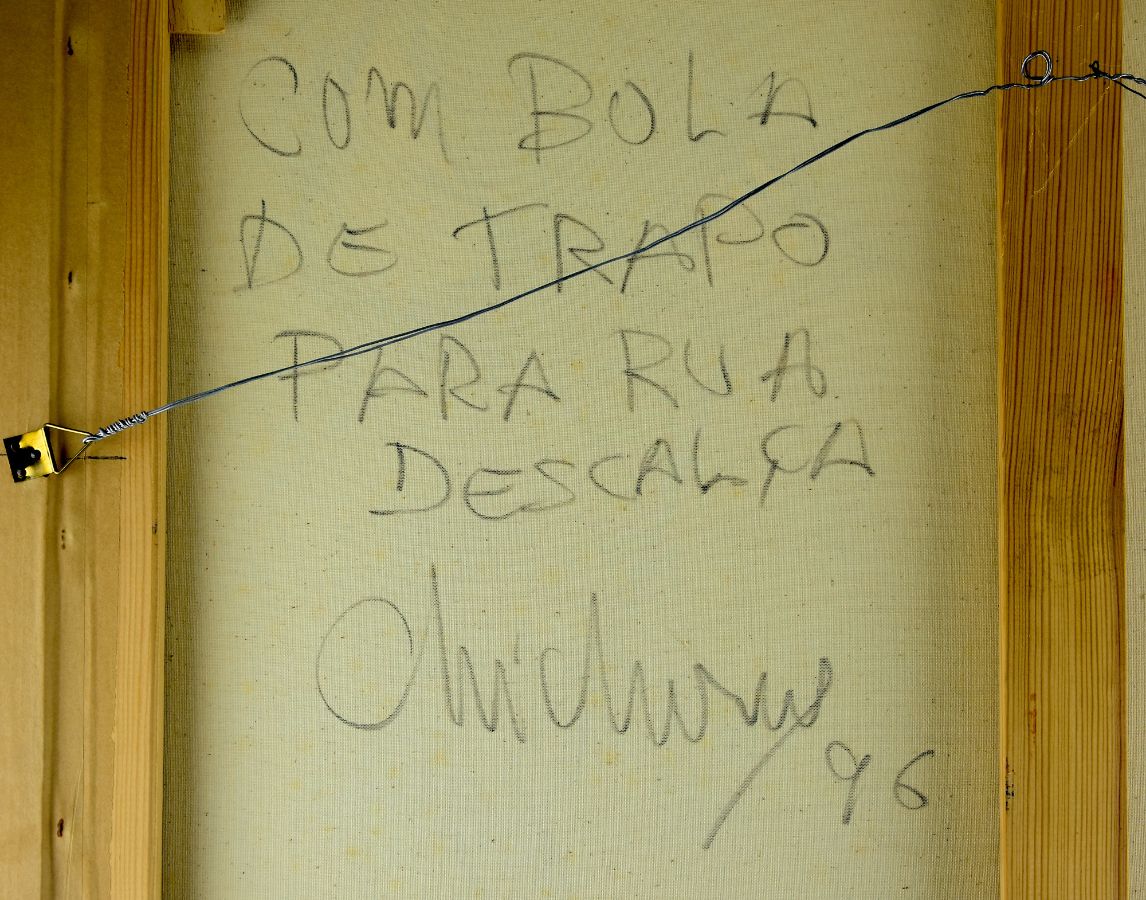 COM BOLA
DE TRAPO
PARA RUA
DESCALÇA
/96